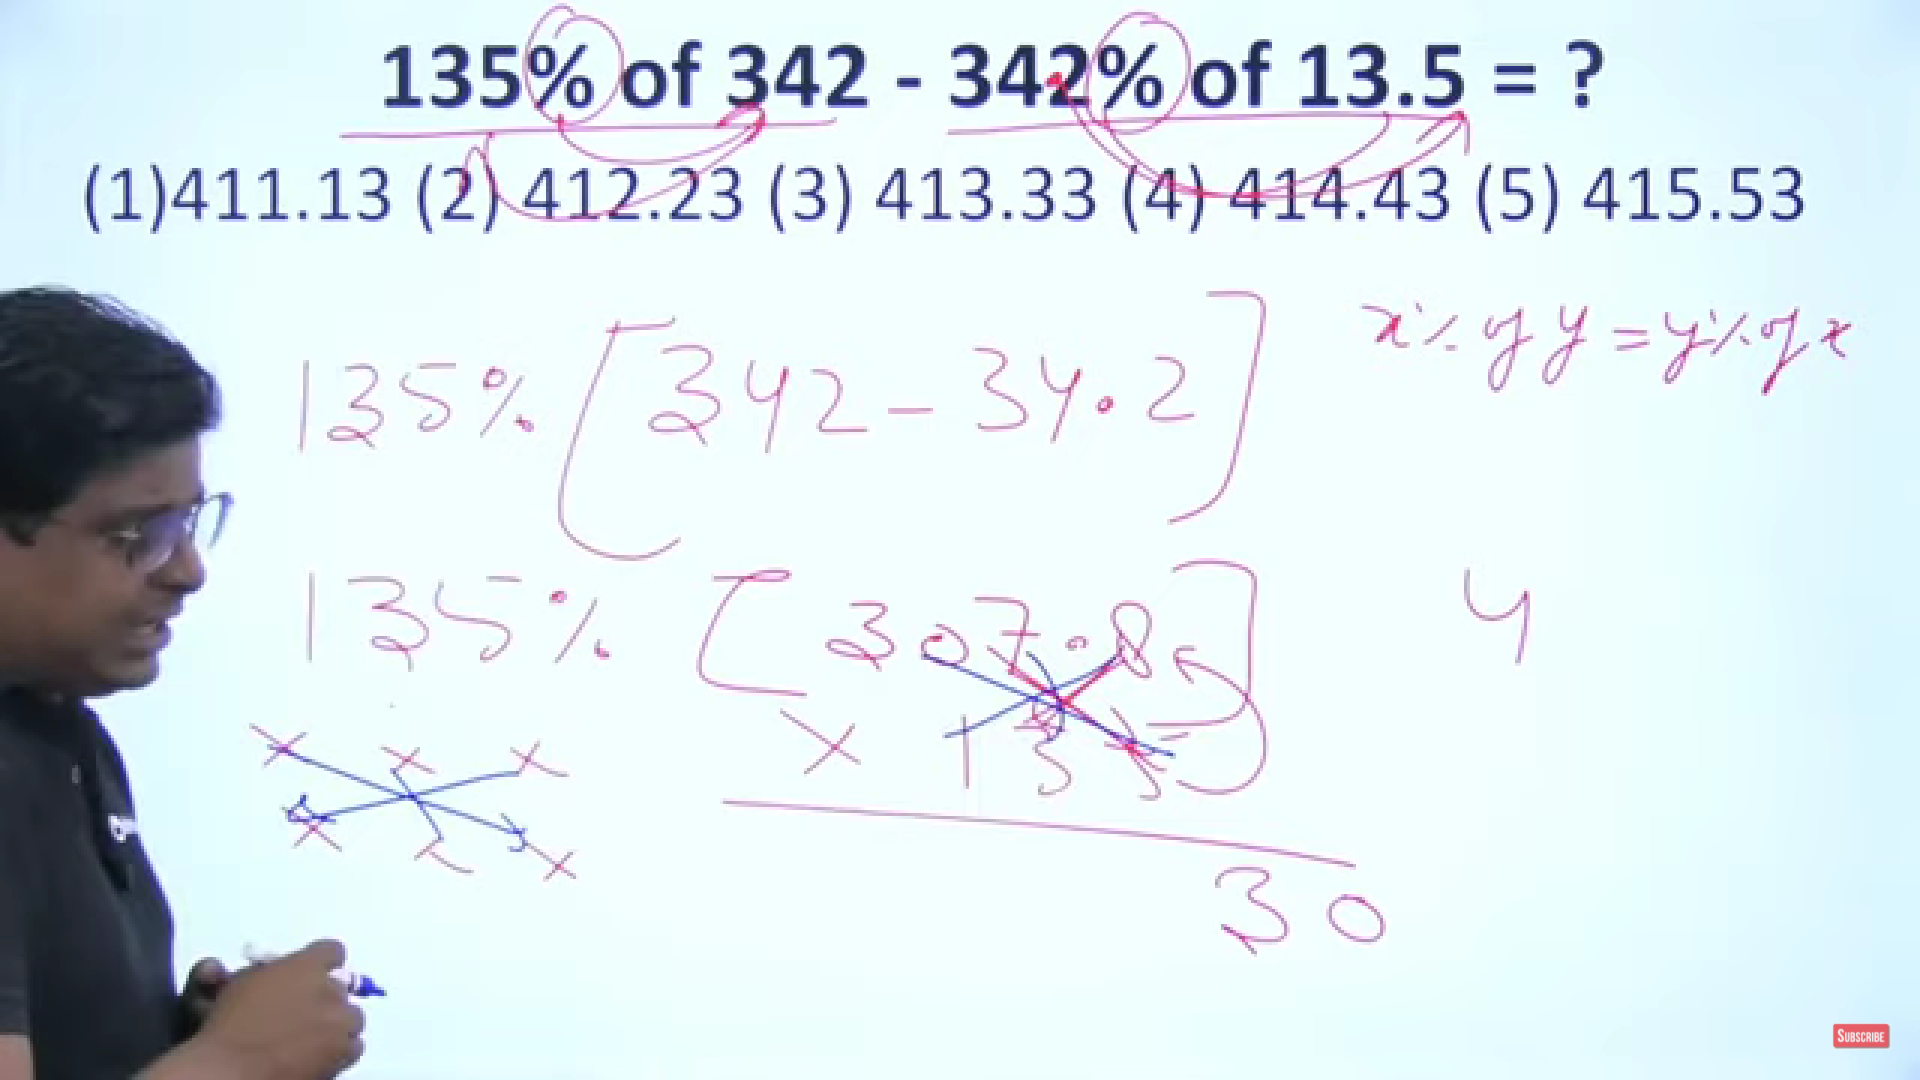 135% of 342 - 342% of 13.5 = ?
(1)411.13 (2) 412.23 (3) 413.33 (4) 414.43 (5) 415.53
x% of y = y% of x
135% [342 - 34.2]
135% [307.8]
4
× 135
30
SUBSCRIBE